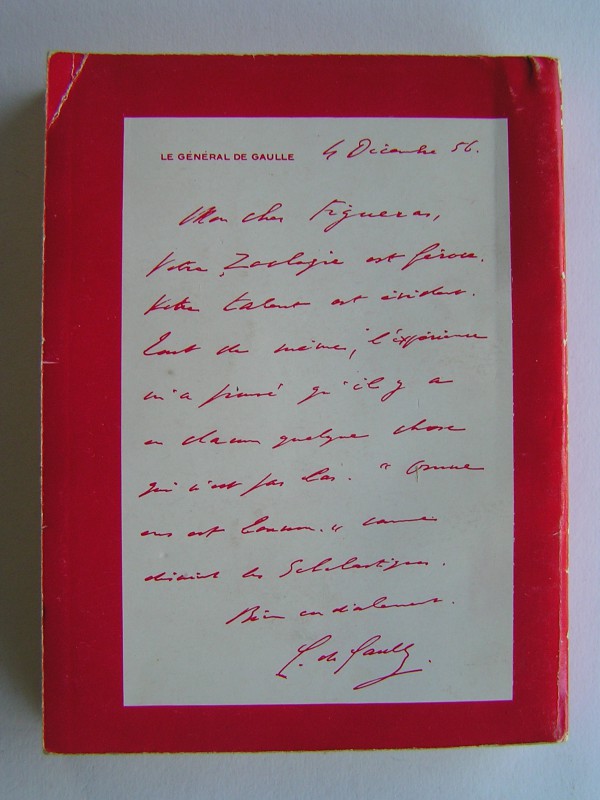 LE GÉNÉRAL DE GAULLE
4 Décembre 56.
Mon cher Figueras,
Votre Zoologie est féroce.
Votre talent est évident.
Tout de même, l'expérience
m'a prouvé qu'il y a
en chacun quelque chose
qui n'est pas bas. "Omne
ens est bonum." comme
disaient les Scholastiques.
Bien cordialement.
C. de Gaulle.